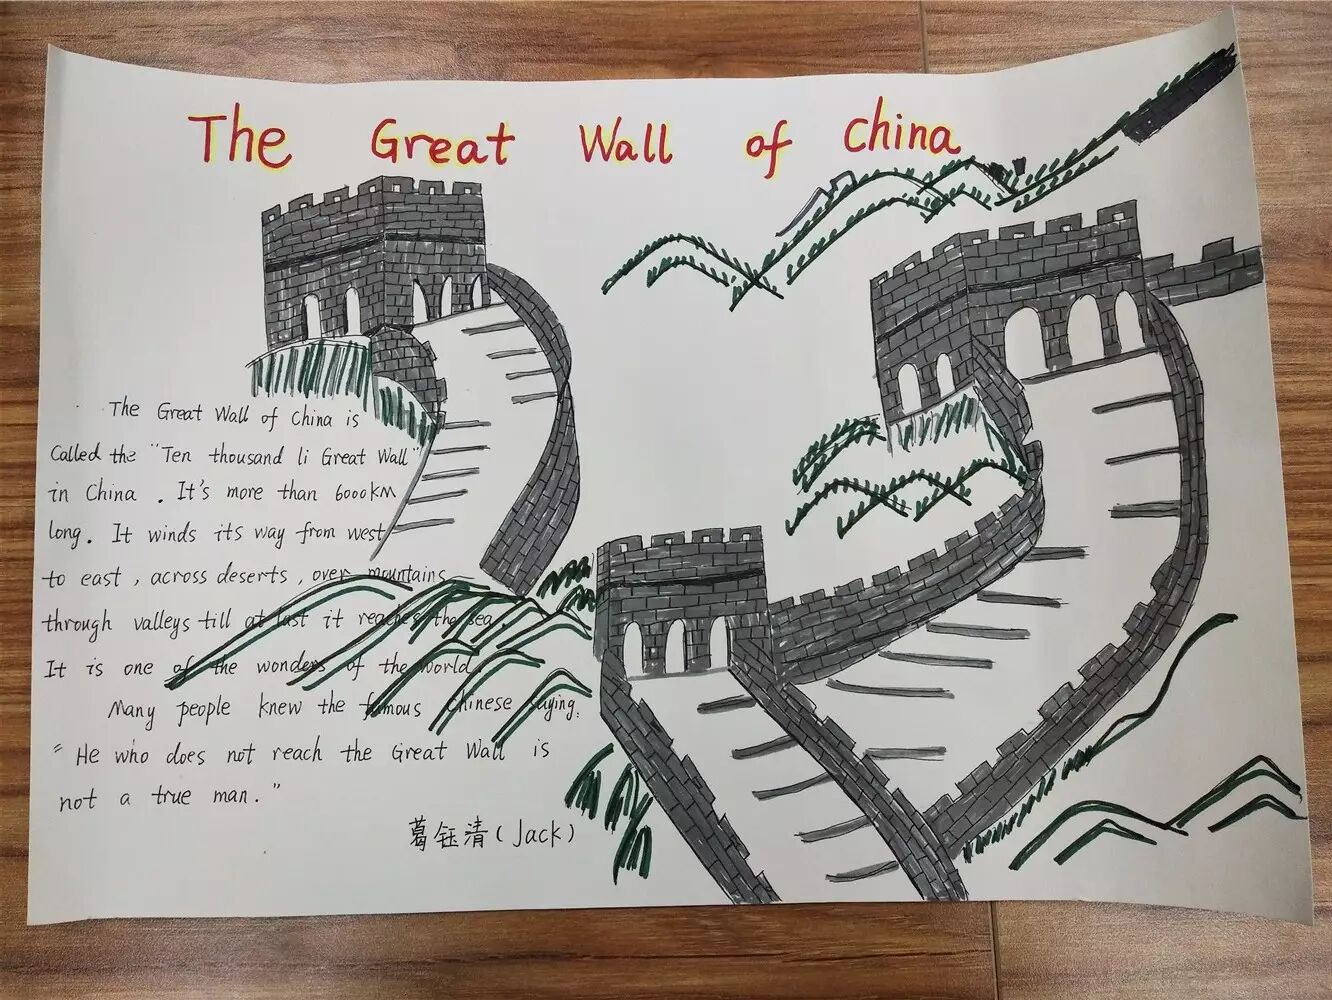 The Great Wall of China
The Great Wall of China is
Called the "Ten thousand li Great Wall"
in China . It's more than 6000KM
long. It winds its way from west
to east , across deserts , over mountains
through valleys till at last it reaches the sea.
It is one of the wonders of the world.
Many people knew the famous Chinese saying.
" He who does not reach the Great Wall is
not a true man. "
葛钰清 (Jack)